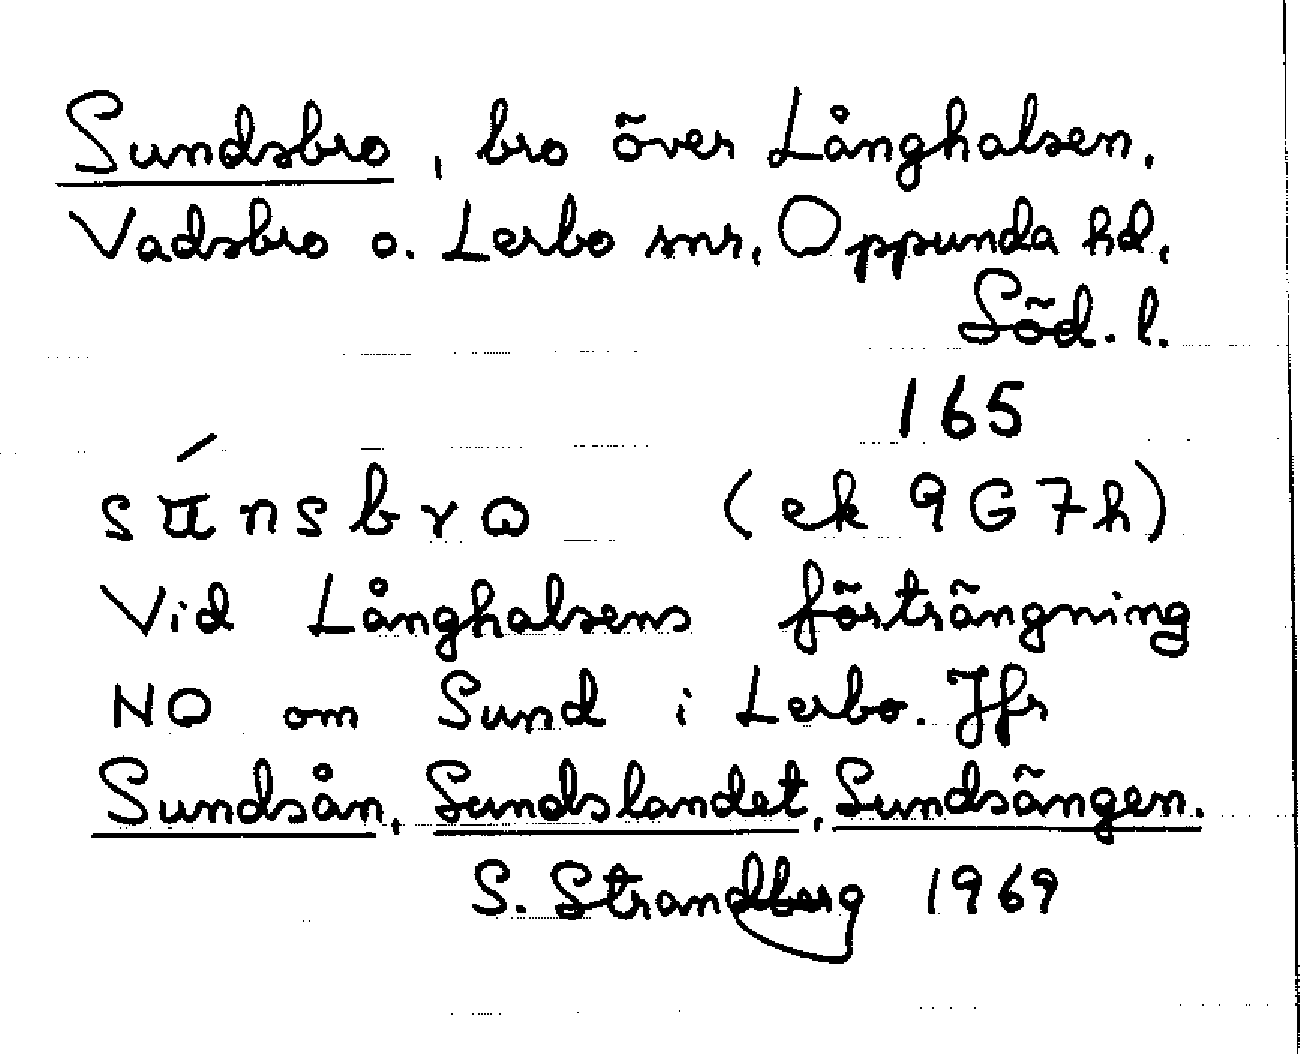 Sundsbro, bro över Långhalsen,
Vadsbro o. Lerbo snr, Oppunda hd,
Söd. l.
165
súnsbro (ek 9G7h)
Vid Långhalsens förträngning
NO om Sund i Lerbo. Jfr
Sundsån, Sundslandet, Sundsängen.
S. Strandberg 1969